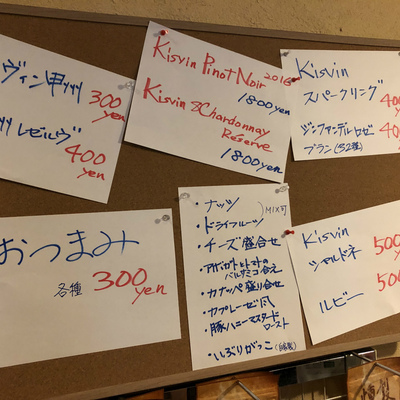 ヴィン甲州
300
yen
州 レゼルヴ
400
yen
Kisvin Pinot Noir 2016
1800yen
Kisvin Chardonnay
Reserve
1800yen
Kisvin
スパークリング
ジンファンデル ロゼ
ブラン(52種)
おつまみ
各種 300
yen
・ナッツ
・ドライフルーツ
)MIX可
・チーズ盛合せ
・アボガドとトマトの
バルサミコ合え
・カナッペ盛り合せ
・カプレーゼ風
・豚ハニーマスタード
ロースト
・いぶりがっこ(自家製)
Kisvin
シャルドネ
ルビー